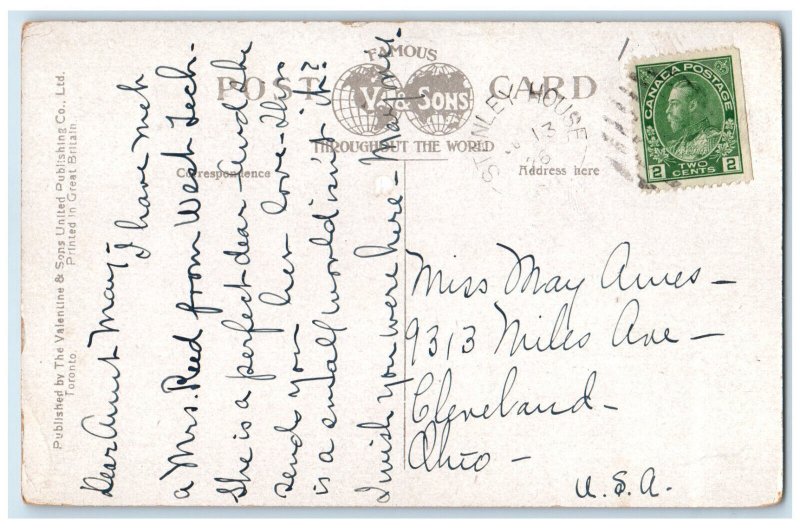 FAMOUS
POST CARD
V. & SONS
THROUGHOUT THE WORLD
Correspondence
Address here
STANLEY HOUSE
13
CANADA POSTAGE
2 TWO CENTS 2
Published by The Valentine & Sons United Publishing Co., Ltd.
Toronto.
Printed in Great Britain
Dear Aunt May-
I have met
a Mrs. Reed from West Tech.
She is a perfect dear - and she
sends you her love - this
is a small world isn't it?
I wish you were here - Marjorie.
Miss May Ames -
9313 Miles Ave -
Cleveland -
Ohio -
U.S.A.